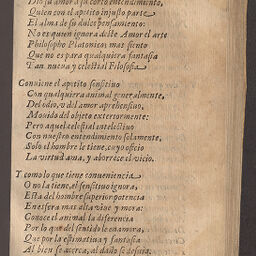 Dio su amor a su corto entendimiento,
Quien con el apetito injusto parte
El alma de su dulce pensamiento:
No es quien ignora deste Amor el arte
Philosopho Platonico: mas siento
Que no es para qualquiera fantasia
Tan nueua y celestial Filosofia.
Conuiene el apetito sensitiuo
Con qualquiera animal generalmente,
Del odio, y del amor aprehensiuo,
Mouido del objeto exteriormente:
Pero aquel celestial intelectiuo
Con nuestro entendimiento solamente,
Solo el hombre le tiene, cuyo oficio
La virtud ama, y aborrece el vicio.
Y como lo que tiene conueniencia
O no la tiene, al sensitiuo ignora,
Esta del hombre superior potencia
En esfera mas alta viue y mora:
Conoce el animal la diferencia
Por lo que del sentido le enamora,
Que por la estimatiua y fantasia
Al bien se acerca, al daño se desuia.